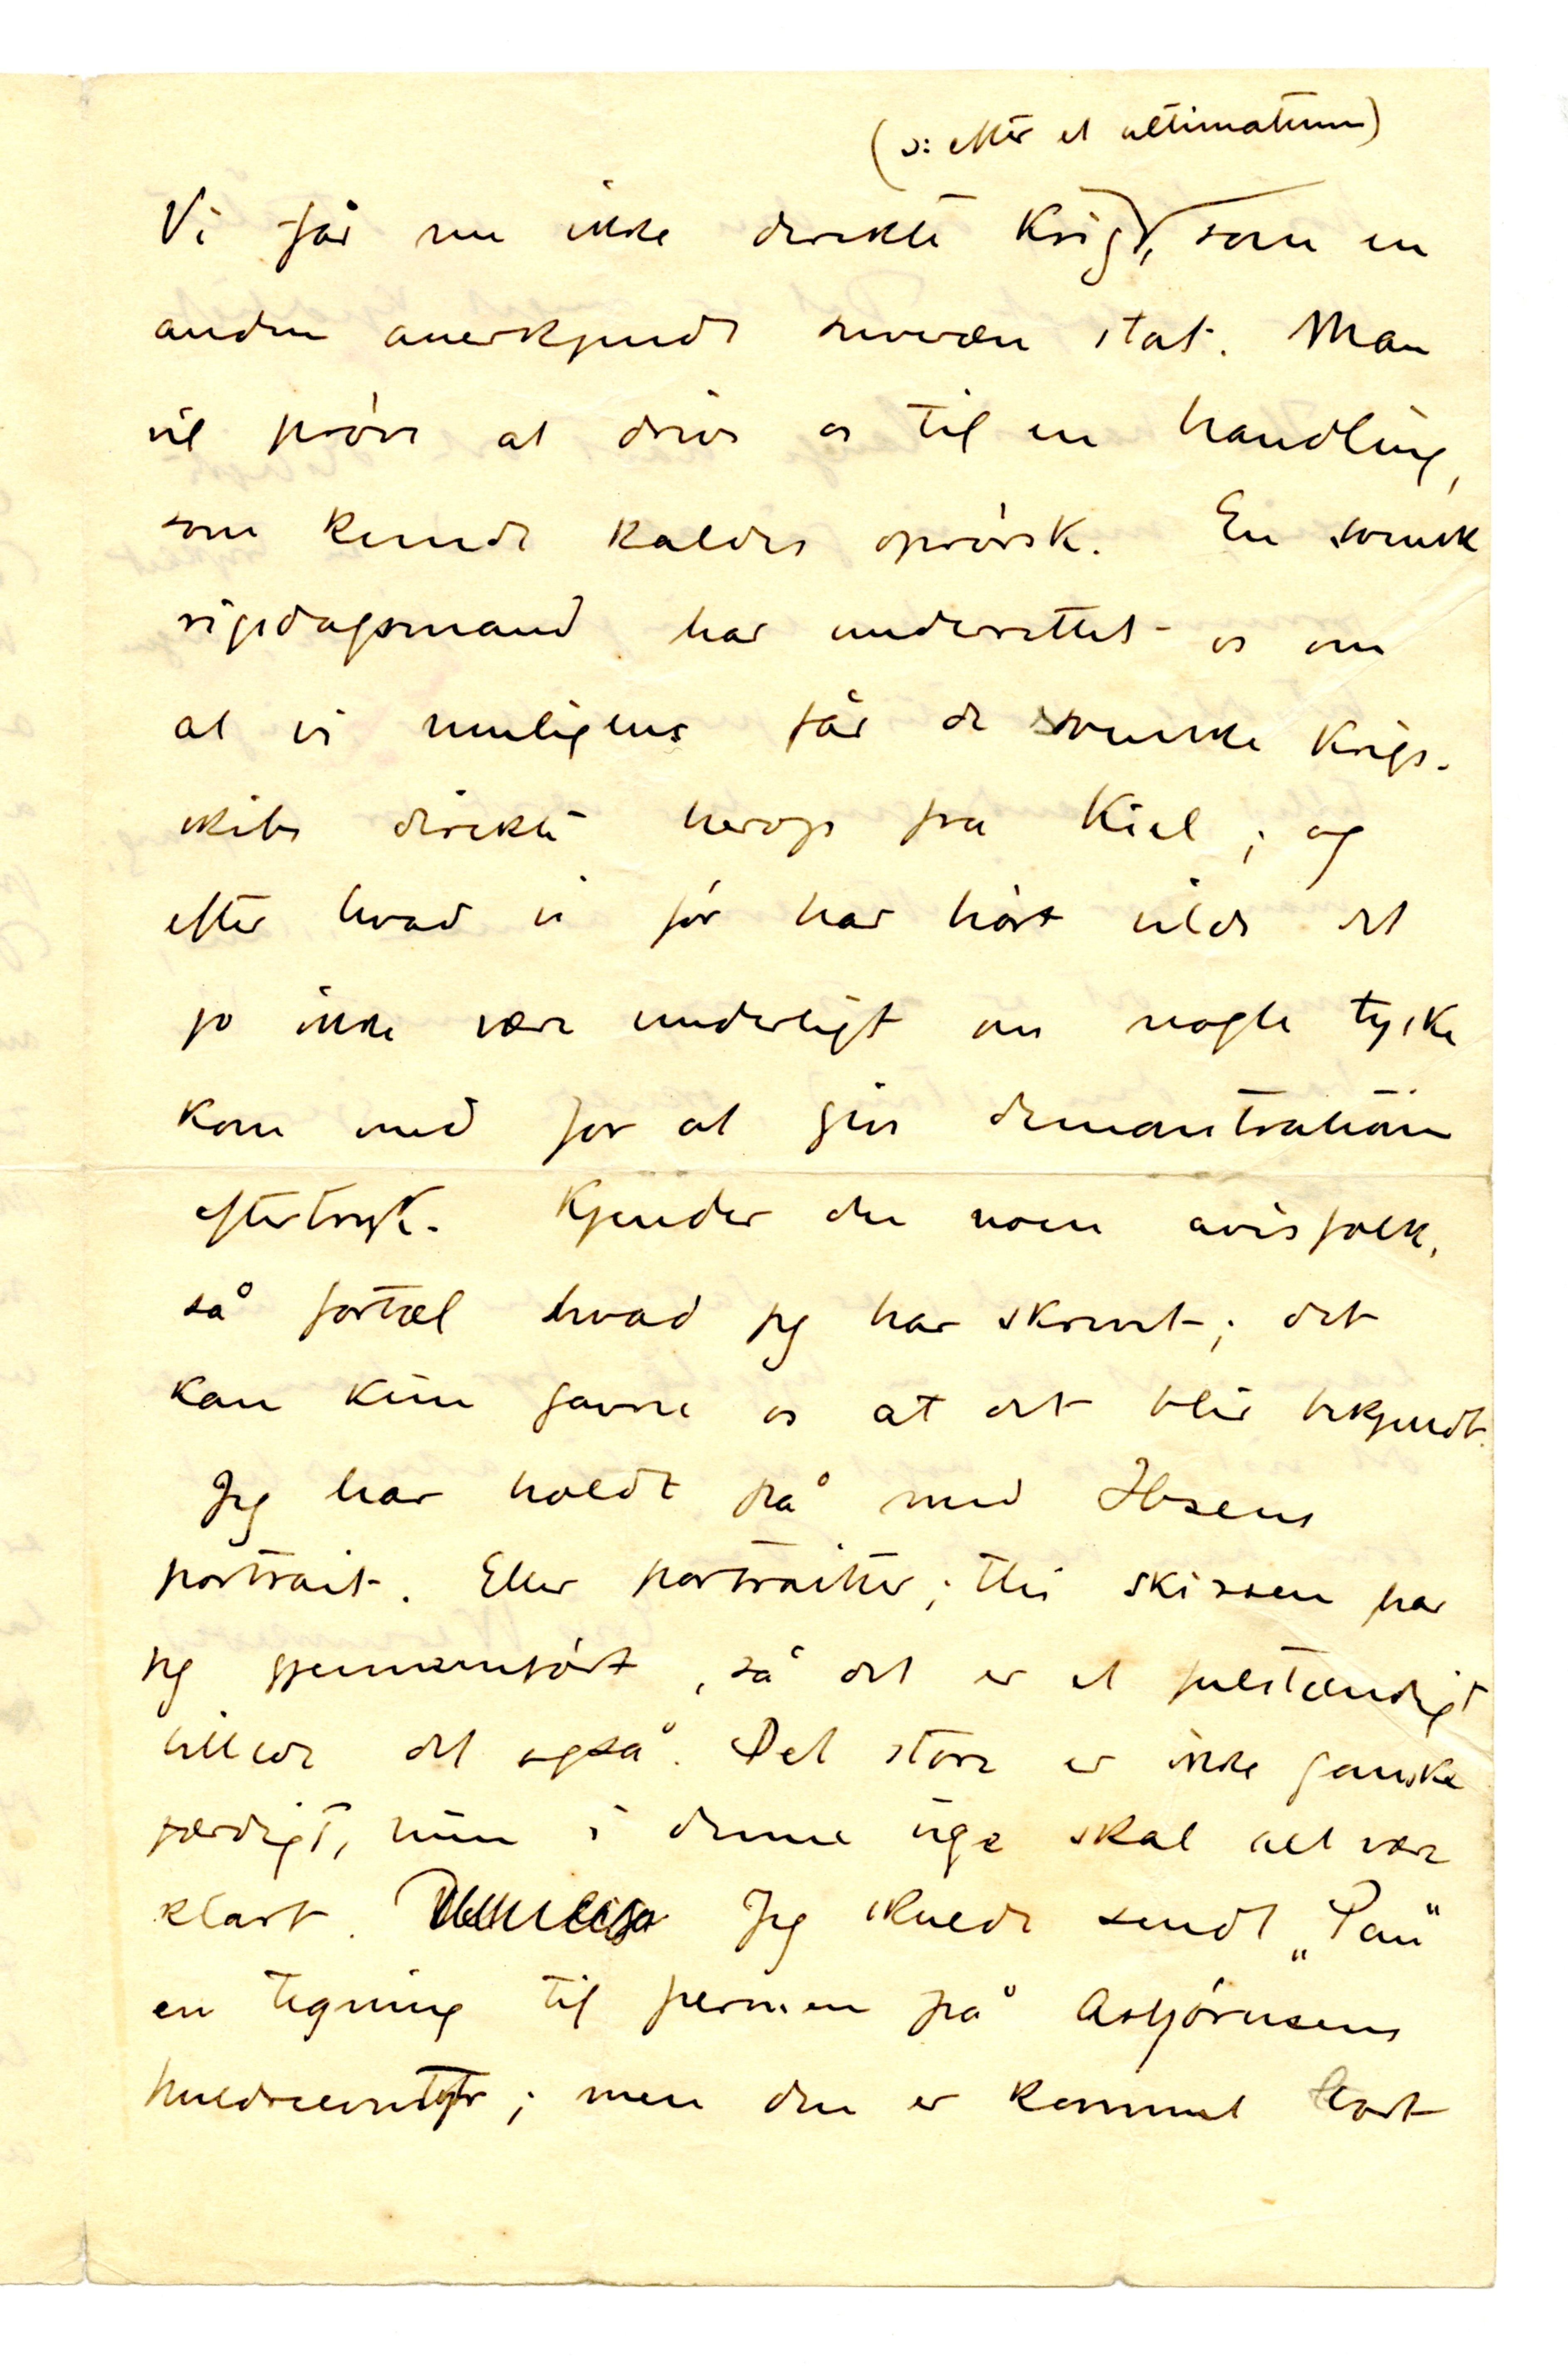 (ɔ: efter et ultimatum)
Vi får nu ikke direkte Krig, som en
anden anerkjendt suveræn stat. Man
vil prøve at drive os til en handling,
som kunde kaldes oprørsk. En svensk
rigsdagsmand har underrettet os om
at vi muligens får de svenske Krigs-
skibe direkte herop fra Kiel; og
efter hvad vi før har hørt vilde det
jo ikke være underligt om nogle tyske
kom med for at give demonstrationen
eftertryk. Kjender du noen avisfolk,
så fortæl hvad jeg har skrevet; det
kan kun gavne os at det blir bekjendt.
Jeg har holdt på med Ibsens
portrait. Eller portraitter; thi skissen har
jeg gjennemført, så det er et fulstændigt
billede det også. Det store er ikke ganske
færdigt, men i denne uge skal alt være
klart. Jeg skulde sendt „Pan"
en tegning til permen på Asbjørnsens
huldreeventyr; men den er kommet bort